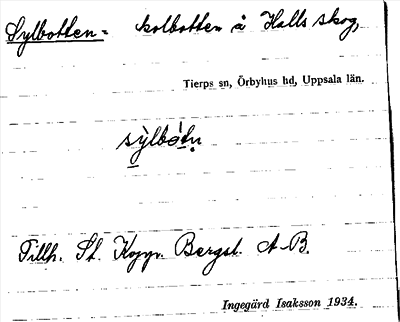 Sylbotten = kolbotten å Halls skog,
Tierps sn, Örbyhus hd, Uppsala län.
sỳlbó̀tn̥
Tillh. St. Kopp. Bergsl. A-B.
Ingegärd Isaksson 1934.